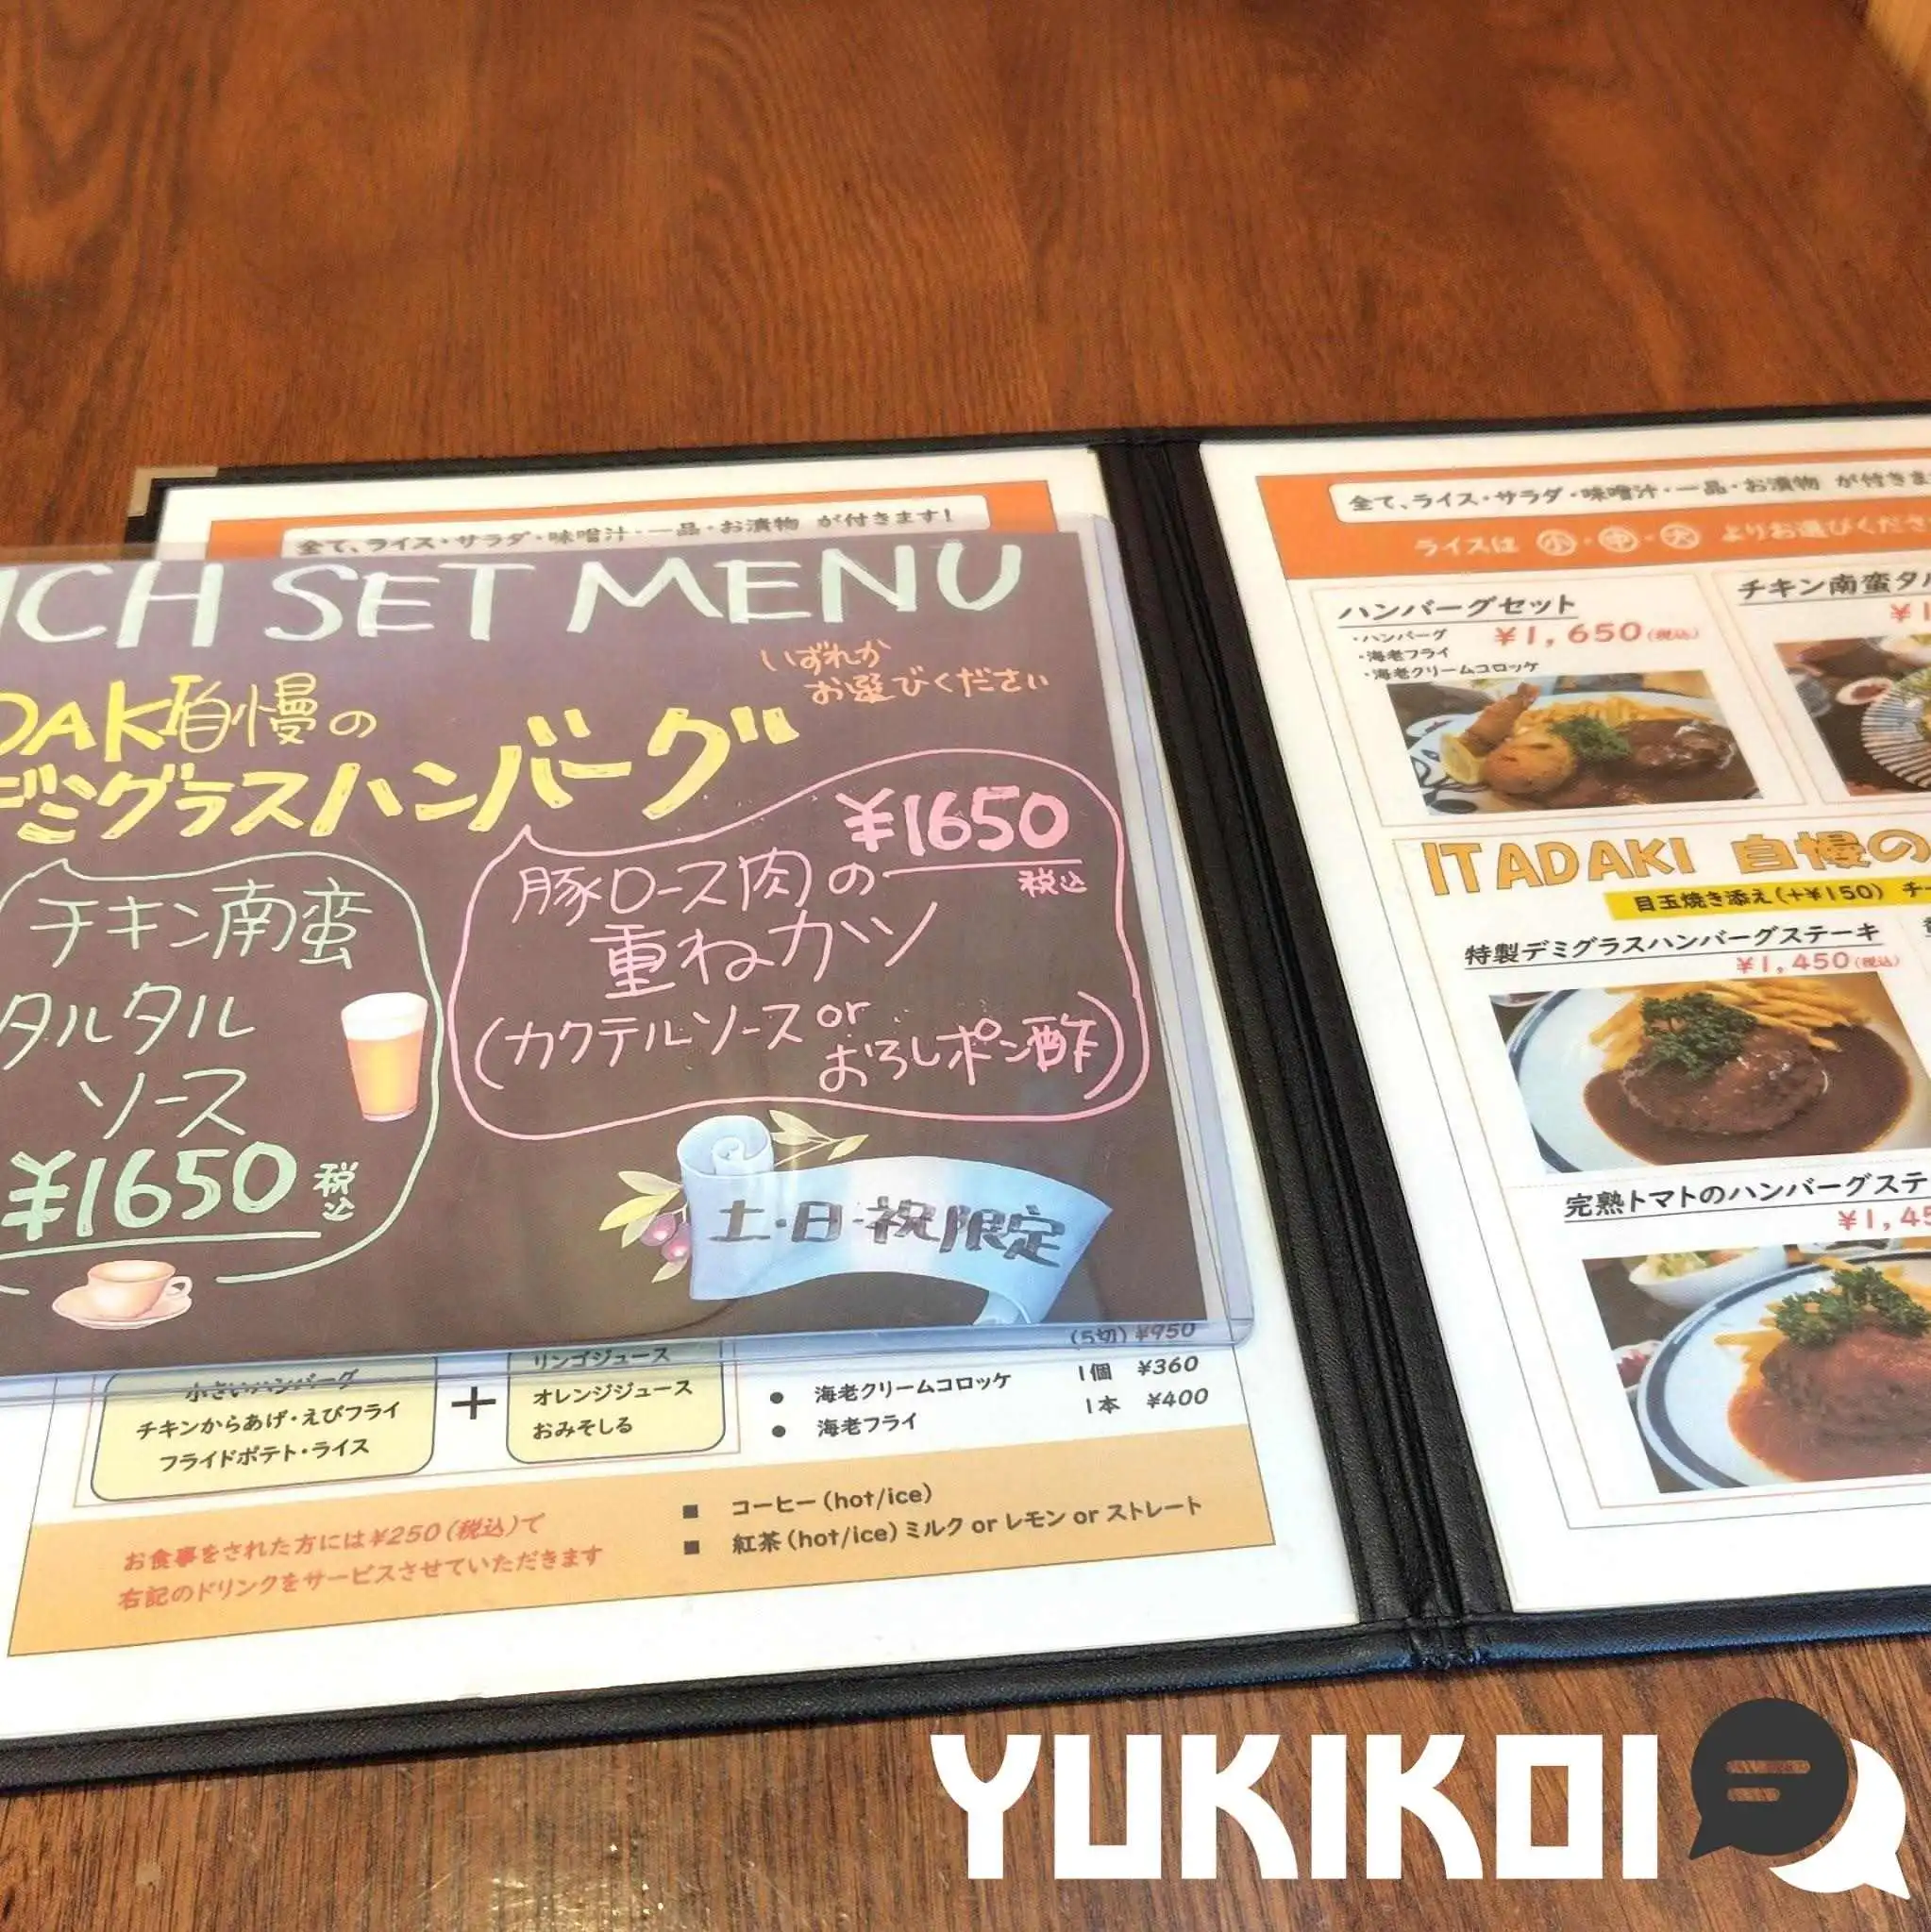 全て、ライス・サラダ・味噌汁・一品・お漬物 が付きます!
SET MENU
いずれか
お選びください
自慢の
デミグラスハンバーグ
チキン南蛮
タルタル
ソース
¥1650 税込
¥1650
税込
豚ロース肉の
重ねカツ
(カクテルソース or
おろしポン酢)
土・日・祝限定
小さいハンバーグ
チキンからあげ・えびフライ
フライドポテト・ライス
+
リンゴジュース
オレンジジュース
おみそしる
(5切) ¥950
● 海老クリームコロッケ 1個 ¥360
● 海老フライ 1本 ¥400
お食事をされた方には¥250(税込)で
右記のドリンクをサービスさせていただきます
■ コーヒー(hot/ice)
■ 紅茶(hot/ice)ミルク or レモン or ストレート
全て、ライス・サラダ・味噌汁・一品・お漬物 が付きま
ライスは 小・中・大 よりお選びくださ
ハンバーグセット
・ハンバーグ ¥1,650(税込)
・海老フライ
・海老クリームコロッケ
チキン南蛮タル
ITADAKI 自慢の
目玉焼き添え(+¥150) チー
特製デミグラスハンバーグステーキ
¥1,450(税込)
完熟トマトのハンバーグステ
¥1,45
YUKIKOI